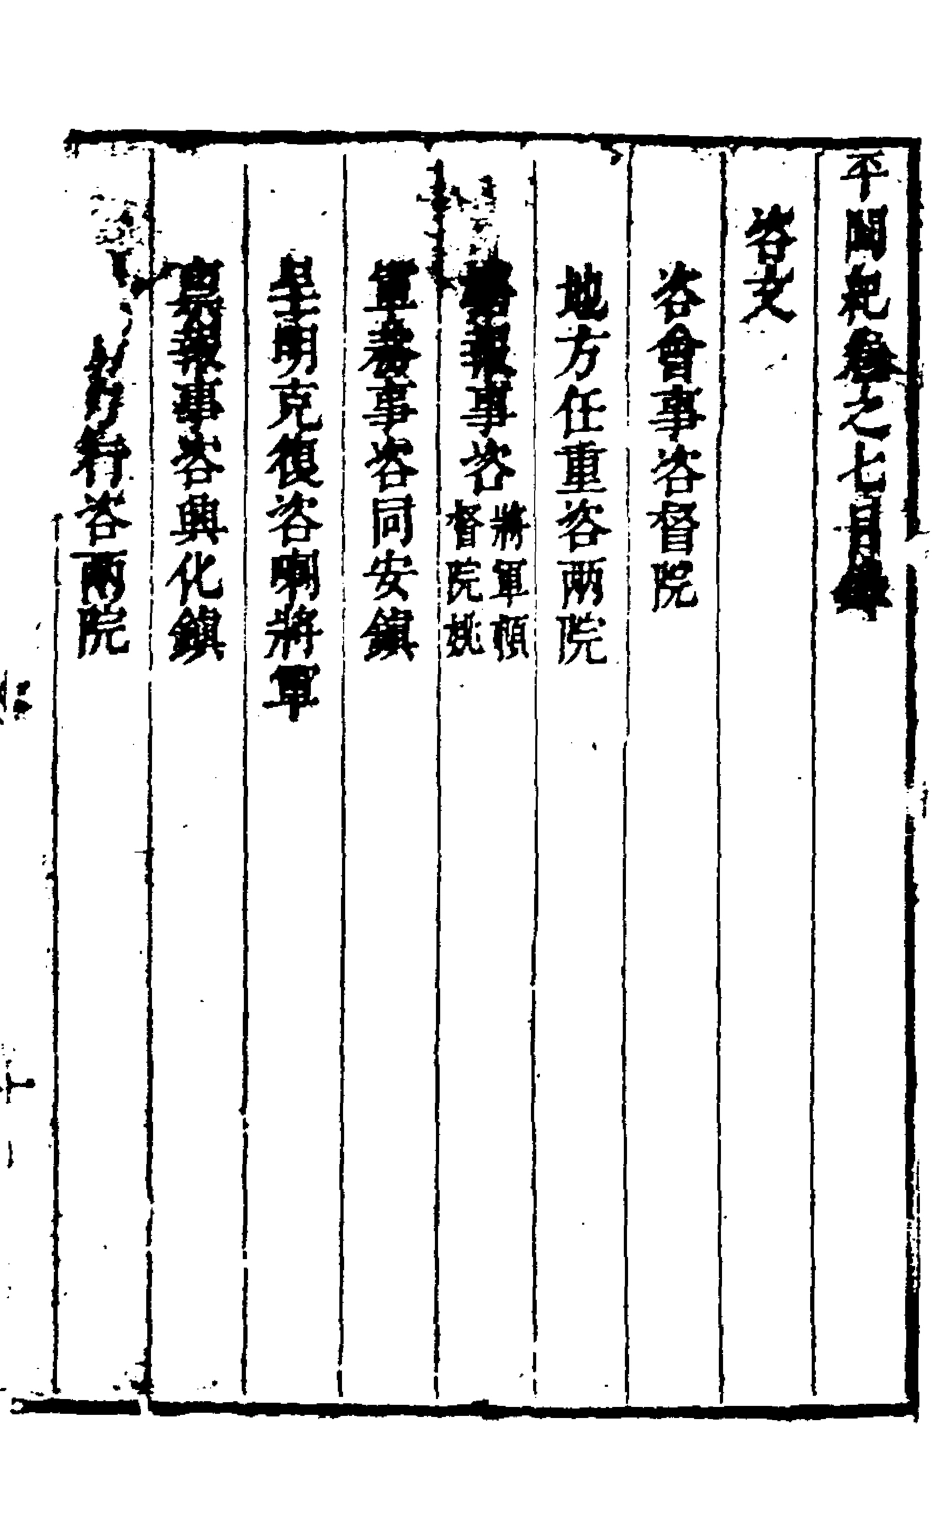 平閩紀卷之七目錄
咨文
咨會事咨督院
地方任重咨兩院
報事咨將軍賴督院姚
軍務事咨同安鎮
呈明克復咨喇將軍
報事咨興化鎮
行咨兩院